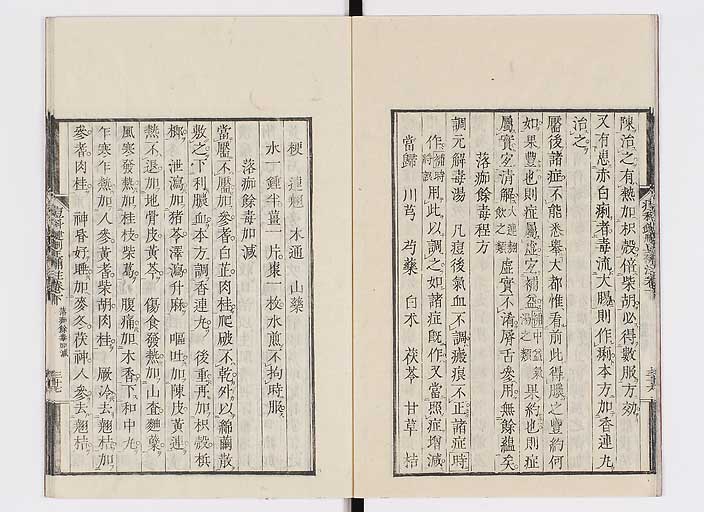 陳治之有熱加枳殼倍柴胡必得數服方効
又有患赤白痢者毒流大腸則作痢本方加香連九
治之
靨後諸症不能悉舉大都惟看前此得膿之豐約何
如果豐也則症屬虛宐補益補中益氣湯之類果約也則症
屬實宐清解大連翹飲之類虛實不淆唇舌參用無餘蘊矣
落痂餘毒程方
調元解毒湯 凡痘後氣血不調瘢痕不正諸症時
作用此以調之如諸症旣作又當照症增減
當歸 川芎 芍藥 白朮 茯苓 甘草 桔
梗 連翹 木通 山藥
水一鍾半薑一片棗一枚水煎不拘時服
落痂餘毒加減
當靨不靨加參耆白芷肉桂爬破不乾外以綿繭散
敷之下利膿血本方調香連丸 後重再加枳殼梹
榔 泄瀉加猪苓澤瀉升麻 嘔吐加陳皮黃連
熱不退加地骨皮黃芩 傷食發熱加山査麯蘗
風寒發熱加桂枝柴葛 腹痛加木香下和中丸
乍寒乍熱加人參黃耆柴胡肉桂 厥冷去翹桔加
參耆肉桂 神昏好睡加麥冬茯神人參去翹桔